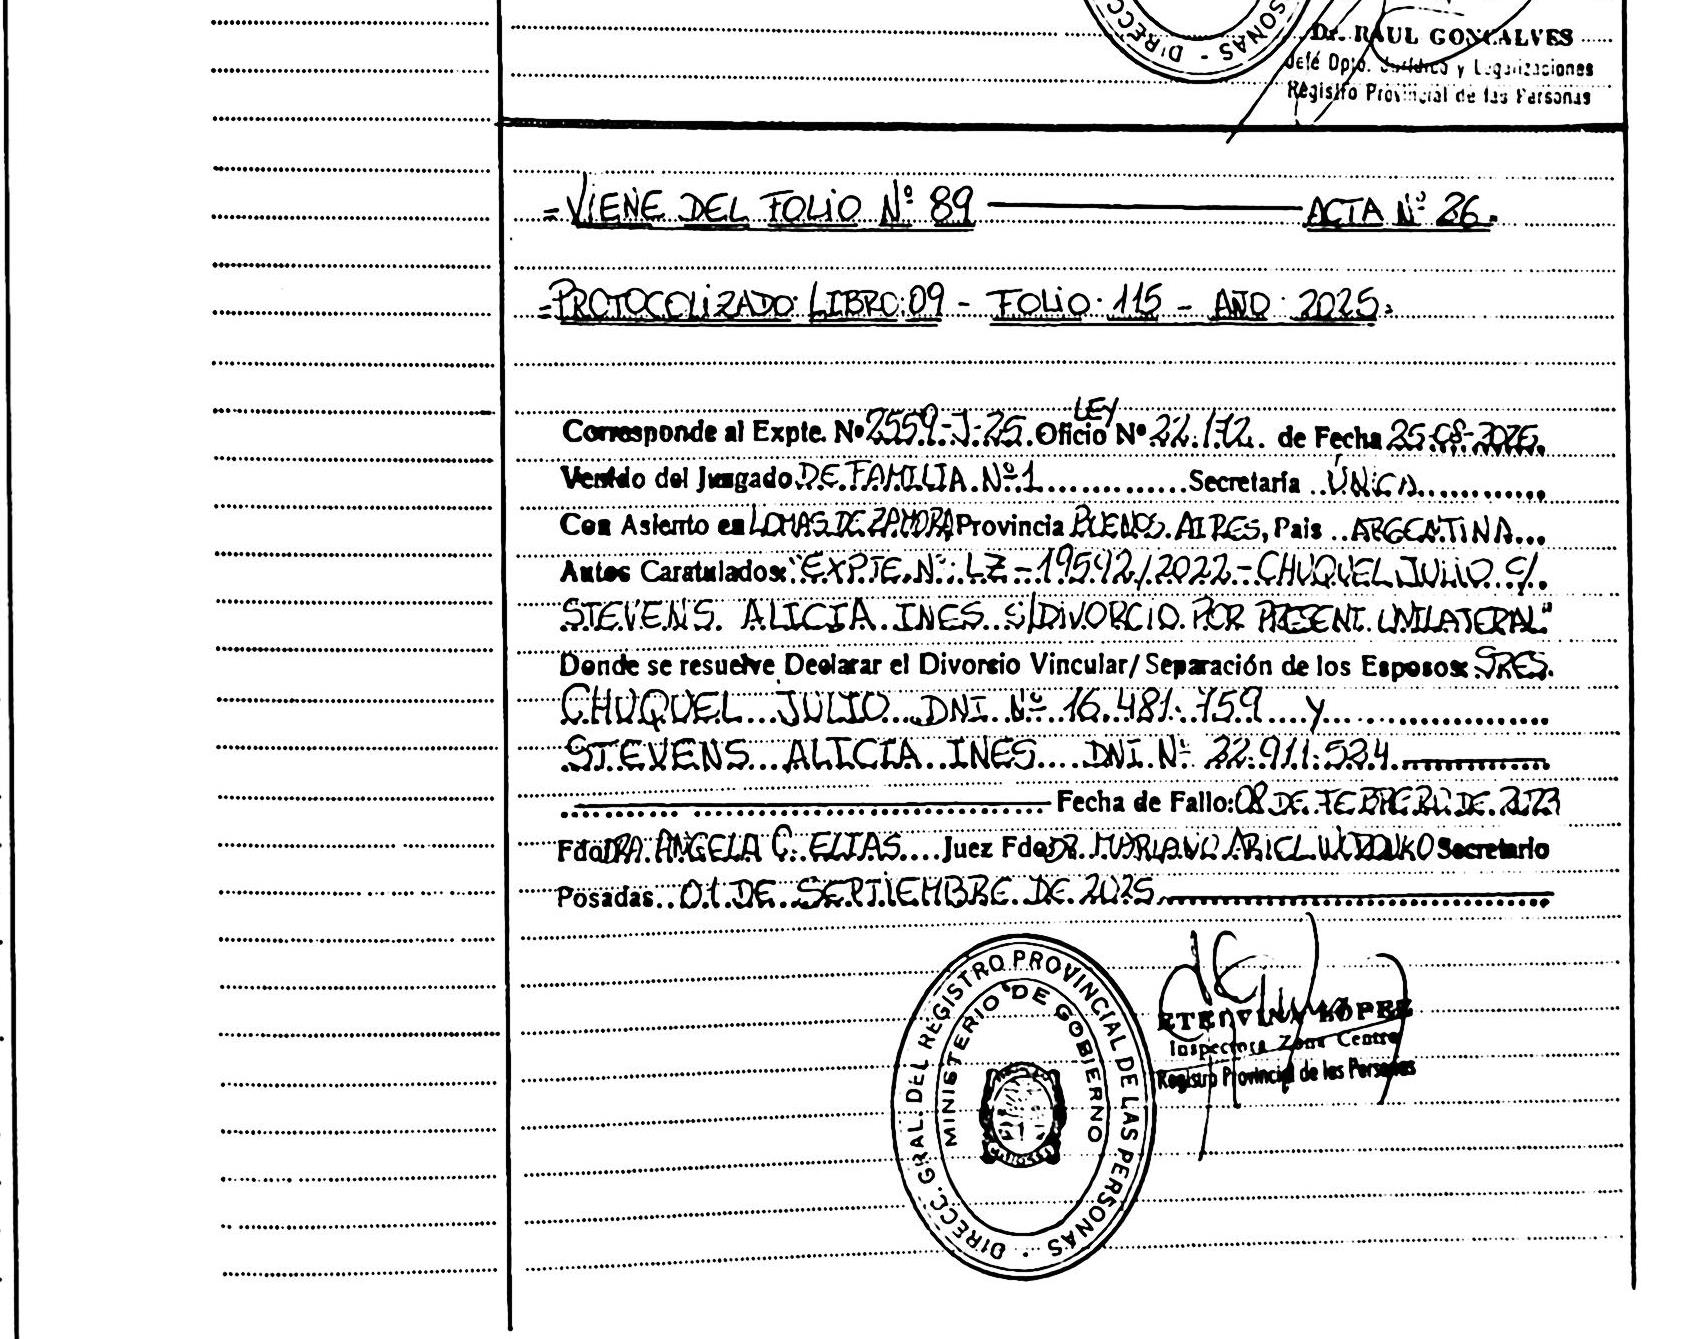 DIRECC SONAS
Dr. RAUL GONCALVES
Jefe Dpto. Jurídico y Legalizaciones
Registro Provincial de las Personas
=VIENE DEL FOLIO Nº 89 ACTA Nº 86.
=PROTOCOLIZADO: LIBRO: 09 - FOLIO: 115 - AÑO: 2025.
LEY
Corresponde al Expte. Nº 2559-J-25. Oficio Nº 22.172. de Fecha 25-08-2025.
Venido del Juzgado DE FAMILIA Nº 1 Secretaría ÚNICA
Con Asiento en LOMAS DE ZAMORA Provincia BUENOS AIRES, Pais ARGENTINA
Autos Caratulados: "EXPTE. Nº: LZ-19592/2022-CHUQUEL JULIO C/.
STEVENS ALICIA INES S/DIVORCIO POR PRESENT. UNILATERAL"
Donde se resuelve Declarar el Divorcio Vincular/ Separación de los Esposos: SRES.
CHUQUEL JULIO DNI Nº 16.481.759 y
STEVENS ALICIA INES DNI Nº 22.911.534
Fecha de Fallo: 08 DE FEBRERO DE 2023
Fdo DRA. ANGELA C. ELIAS Juez Fdo DR. MARIANO ARIEL Secretario
Posadas 01 DE SEPTIEMBRE DE 2025
DIRECC. GRAL. DEL REGISTRO PROVINCIAL DE LAS PERSONAS
MINISTERIO DE GOBIERNO
ETELVINA LÓPEZ
Inspectora Zona Centro
Registro Provincial de las Personas